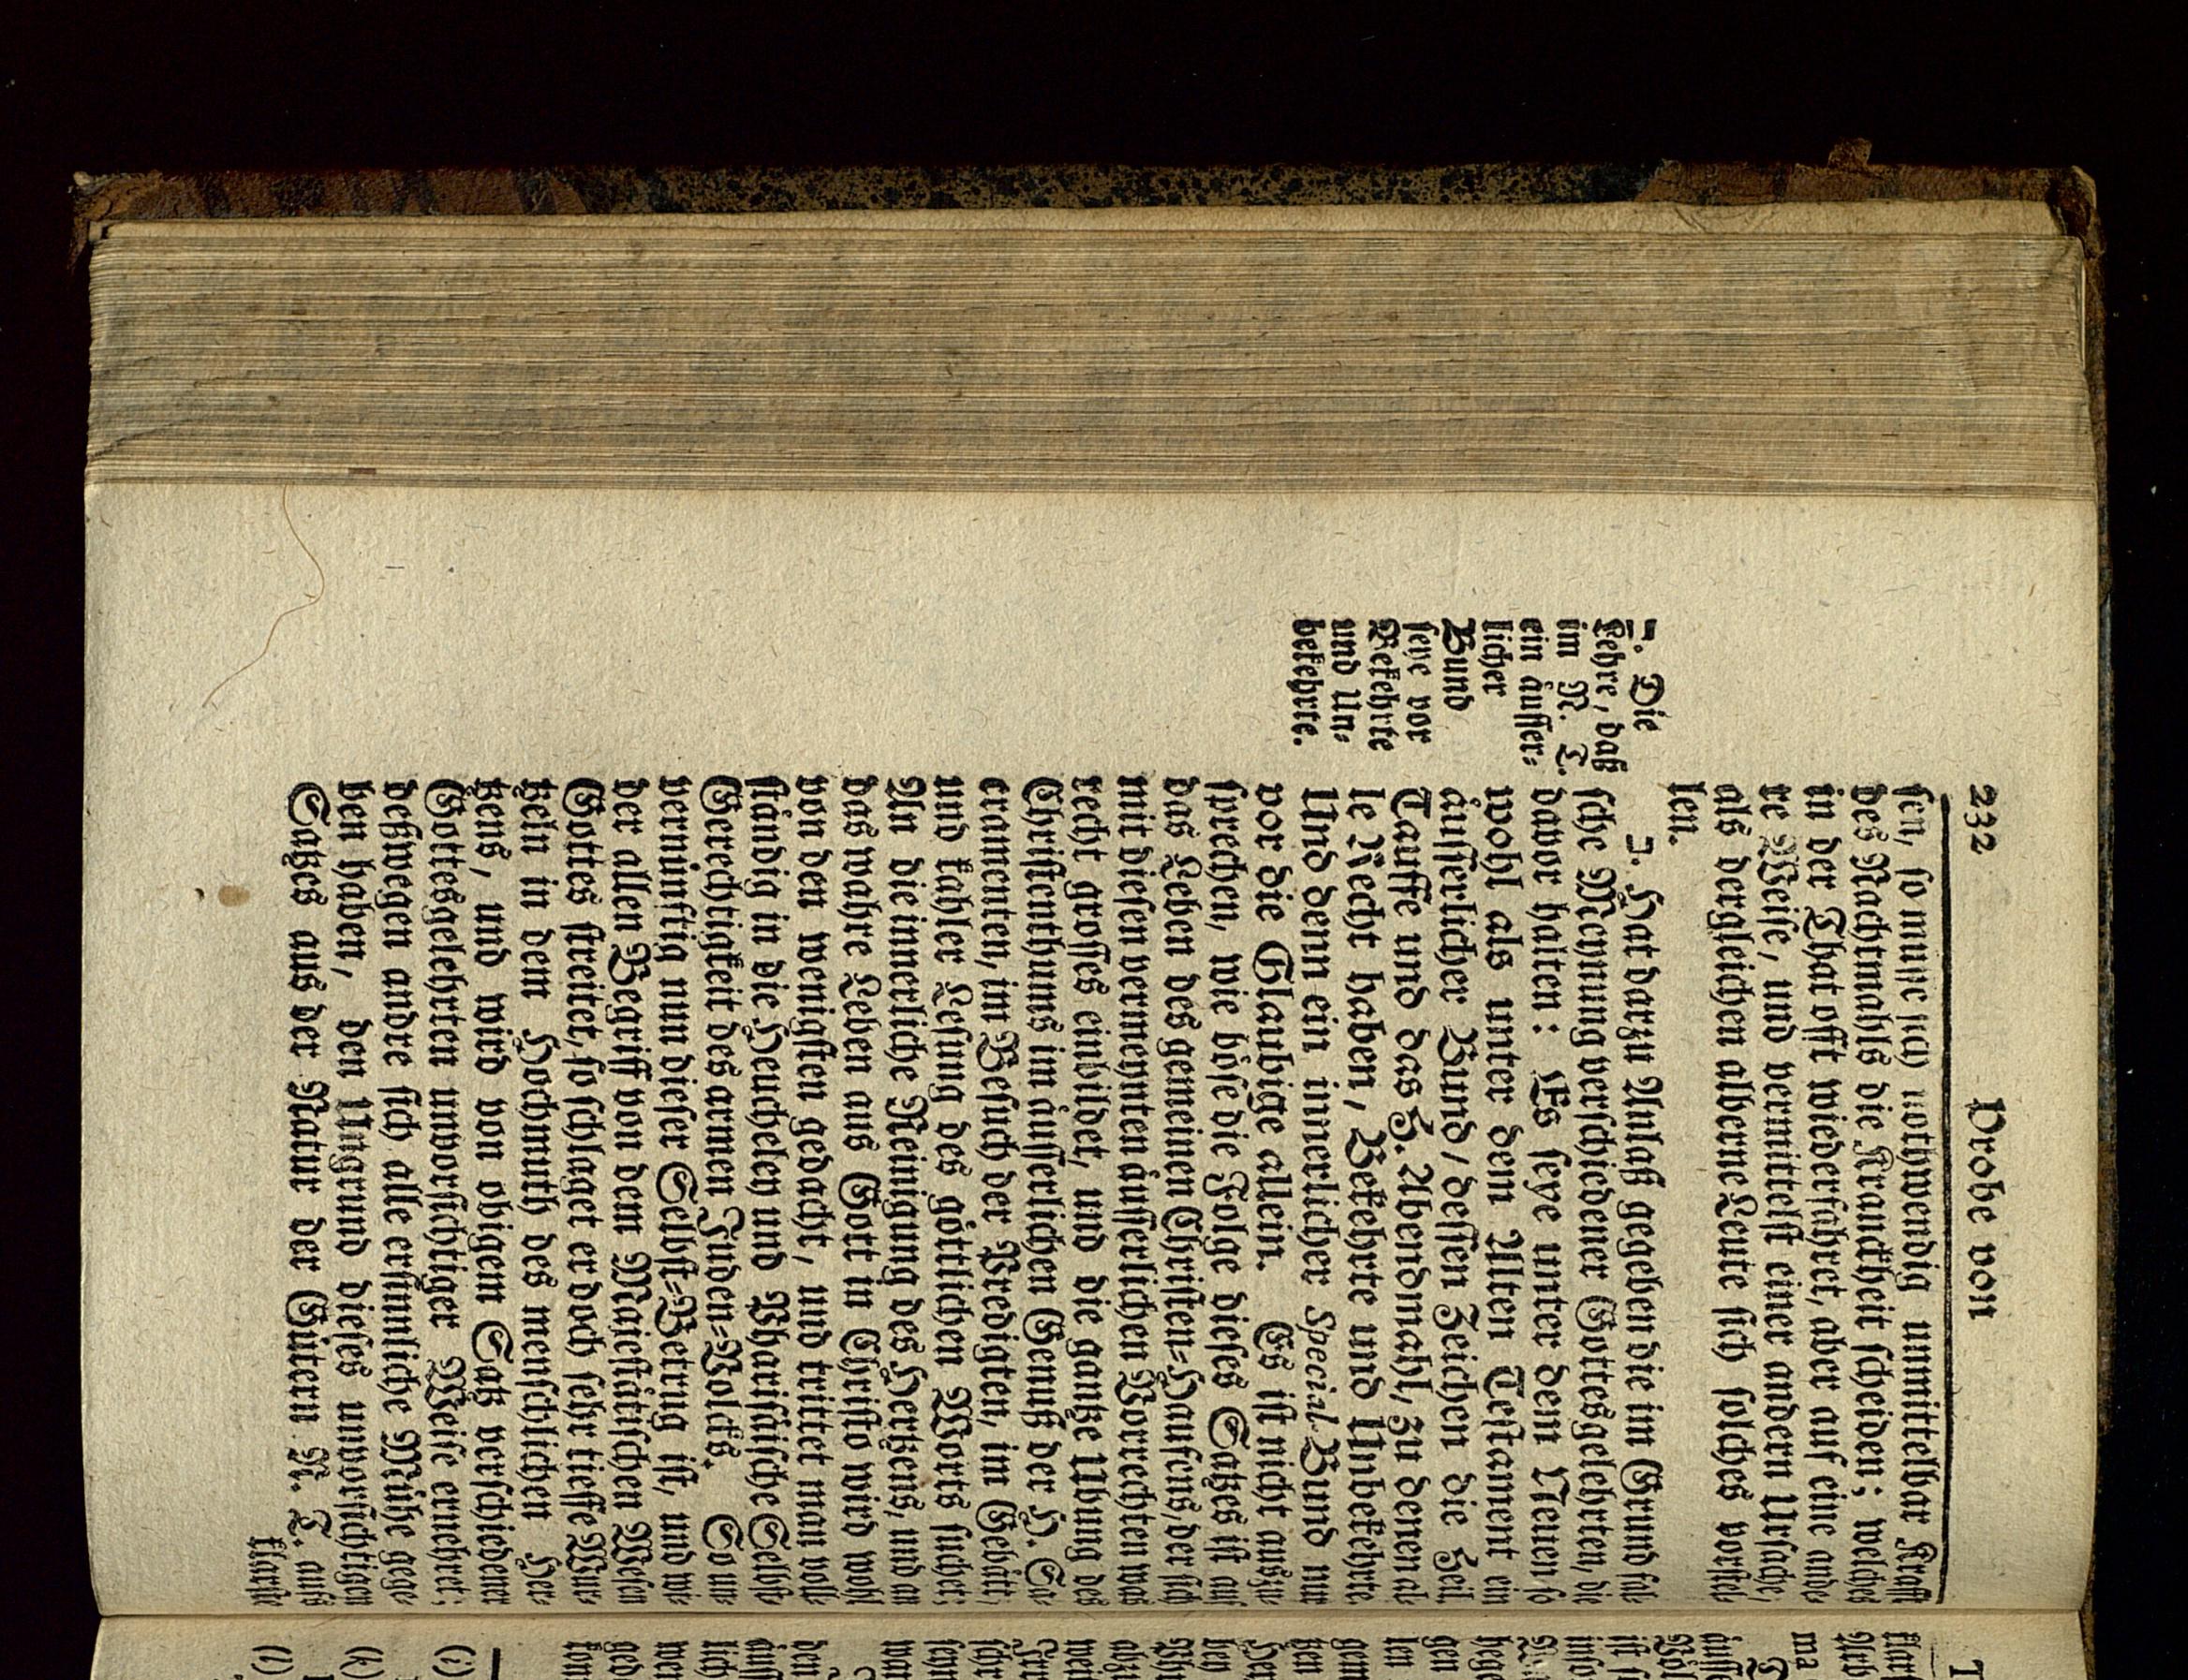 232 Probe von
sen, so müsse sich nothwendig unmittelbar Krafft
des Nachtmahls die Kranckheit scheiden; welches
in der That offt wiederfähret, aber auf eine ande-
re Weise, und vermittelst einer andern Ursache,
als dergleichen alberne Leute sich solches vorstel-
len.
7. Die
Lehre, daß
im N. T.
ein äusser-
licher
Bund
seye vor
Bekehrte
und Un-
bekehrte.
7. Hat darzu Anlaß gegeben die im Grund fal-
sche Meynung verschiedener Gottesgelehrten, die
davor halten: Es seye unter dem Neuen so
wohl als unter dem Alten Testament ein
äusserlicher Bund / dessen Zeichen die Heil.
Tauffe und das H. Abendmahl, zu denen al-
le Recht haben, Bekehrte und Unbekehrte.
Und denn ein innerlicher Special-Bund nur
vor die Glaubige allein. Es ist nicht auszu-
sprechen, wie böse die Folge dieses Satzes ist auf
das Leben des gemeinen Christen-Haufens, der sich
mit diesen vermeynten äusserlichen Vorrechten was
recht grosses einbildet, und die gantze Ubung des
Christenthums im äusserlichen Genuß der H. Sa-
cramenten, im Besuch der Predigten, im Gebätt,
und kahler Lesung des göttlichen Worts suchet;
An die innerliche Reinigung des Hertzens, und an
das wahre Leben aus Gott in Christo wird wohl
von den wenigsten gedacht, und trittet man voll-
ständig in die Heucheley und Pharisäische Selbst-
Gerechtigkeit des armen Juden-Volcks. So un-
vernünftig nun dieser Selbst-Betrug ist, und wi-
der allen Begriff von dem Majestätischen Wesen
Gottes streitet, so schlaget er doch sehr tieffe Wur-
tzeln in dem Hochmuth des menschlichen Her-
tzens, und wird von obigem Satz verschiedener
Gottesgelehrten unvorsichtiger Weise ernehret;
deßwegen andre sich alle ersinnliche Mühe gege-
ben haben, den Ungrund dieses unvorsichtigen
Satzes aus der Natur der Gütern N. T. aufs
kläreste